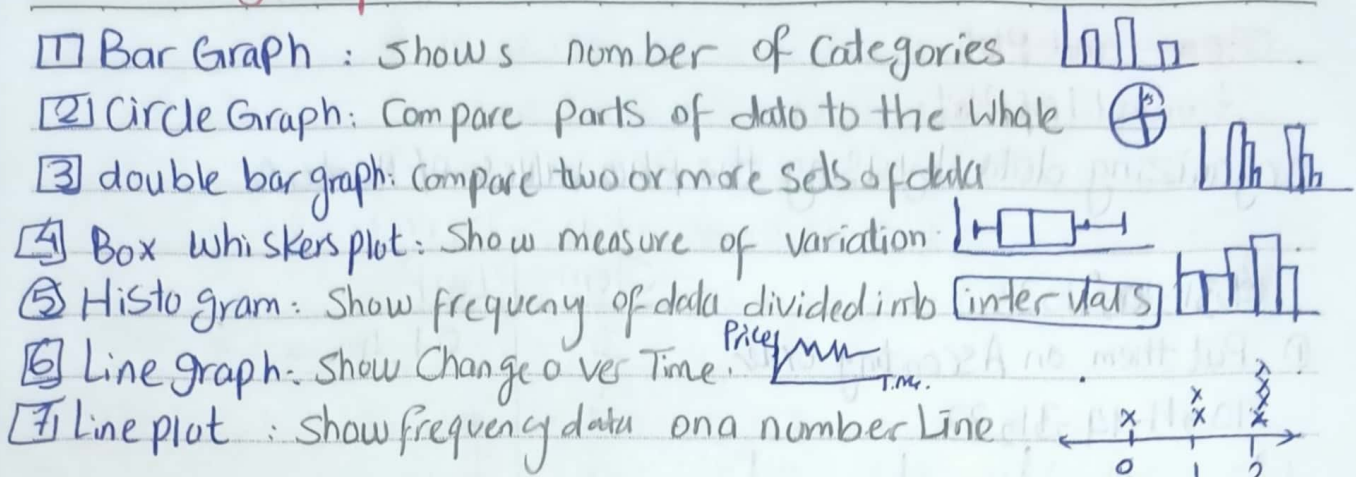 1 Bar Graph : Shows number of Categories
2 Circle Graph: Compare parts of data to the Whole
3 double bar graph: Compare two or more sets of data
4 Box Whiskers plot: Show measure of variation
5 Histogram: Show frequeny of data divided into intervals
Price
6 Line graph: Show Change over Time.
Time.
7 Line plot : Show frequency data on a number Line
x x x x x x x
0 1 2